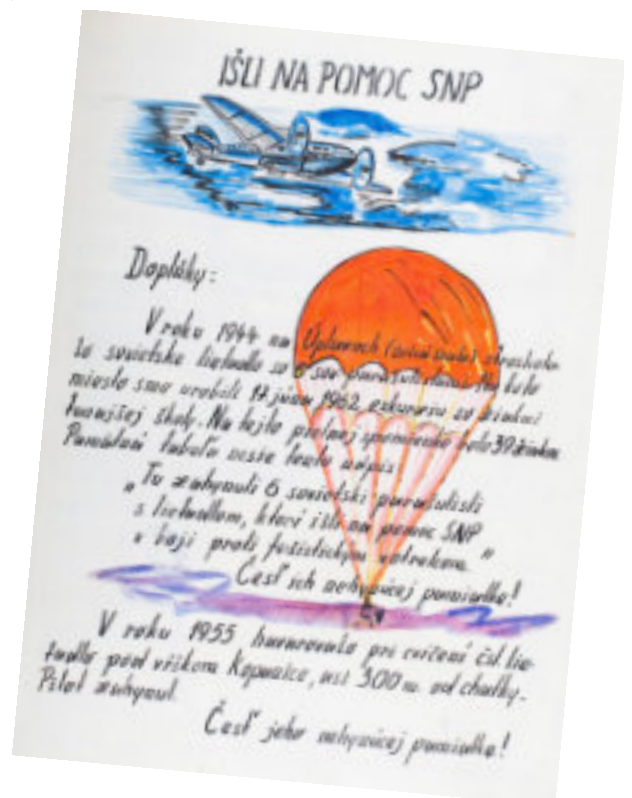 IŠLI NA POMOC SNP
Doplňky:
V roku 1944 na Úplazoch
lo sovietske lietadlo so 6 sov. parašutistami. Na toto
miesto sme urobili 17. júna 1962 exkurziu so žiakmi
tunajšej školy. Na tejto pietnej spomienke bolo 39 žiakov.
Pamätná tabuľa nesie tento nápis:
„Tu zahynuli 6 sovietski parašutisti
s lietadlom, ktorí išli na pomoc SNP
v boji proti fašistickým votrelcom."
Česť ich nehynúcej pamiatke!
V roku 1955 havarovalo pri cvičení čsl. lie-
tadlo pod vŕškom Kopanice, asi 300 m. od chatky.
Pilot zahynul.
Česť jeho nehynúcej pamiatke!